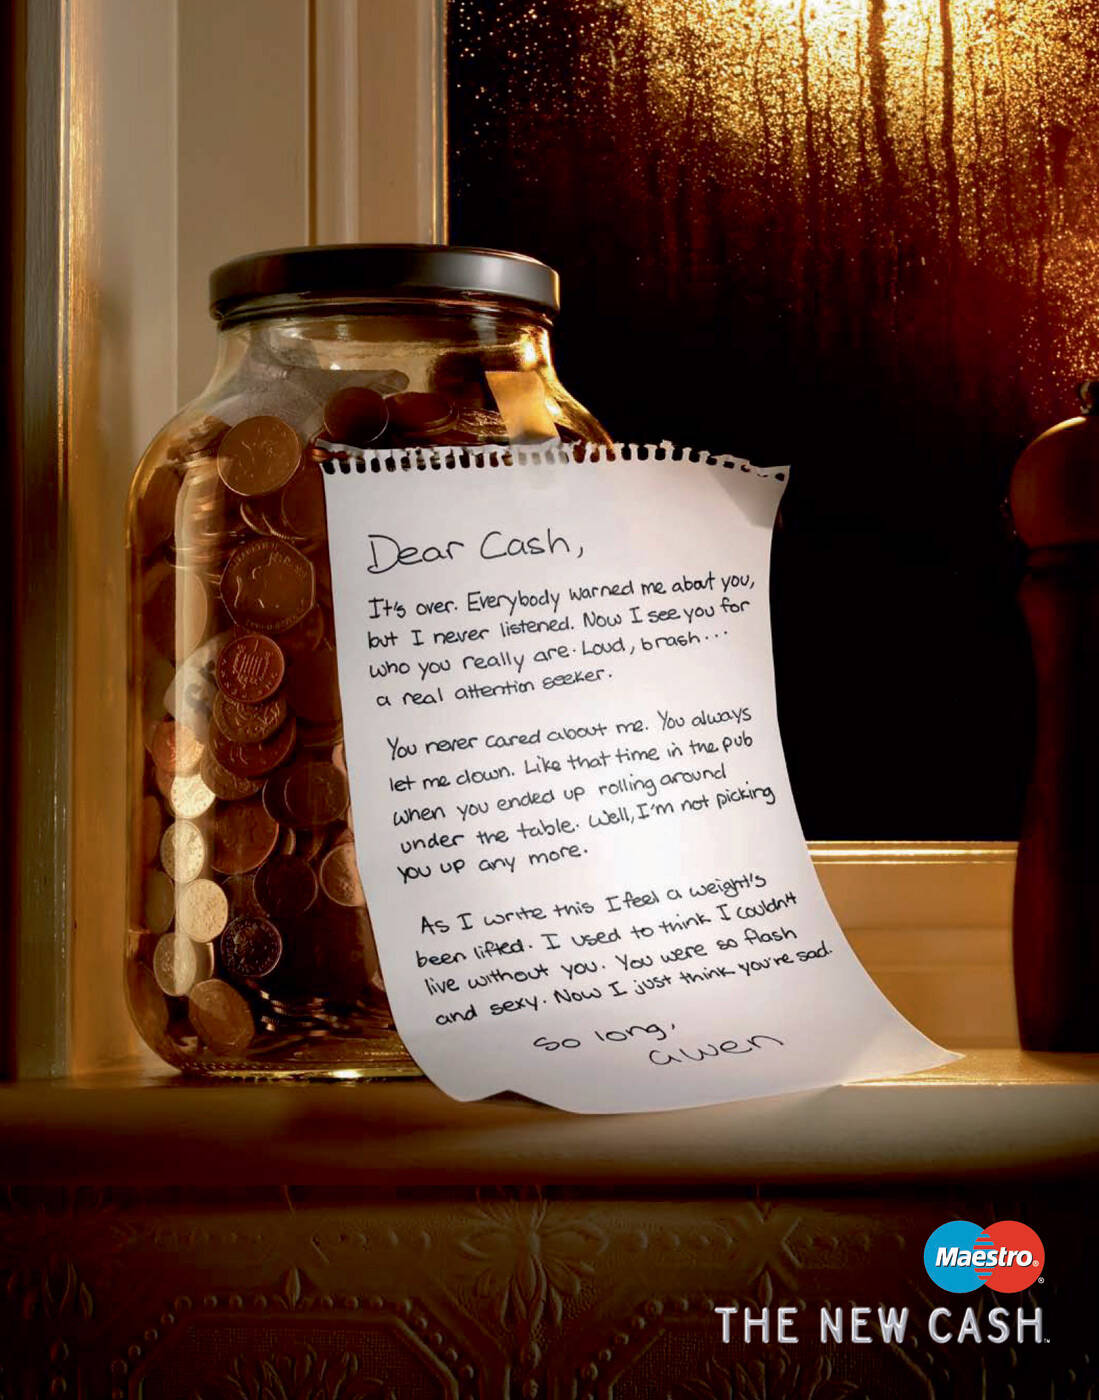 Dear Cash,
It's over. Everybody warned me about you,
but I never listened. Now I see you for
who you really are. Loud, brash...
a real attention seeker.
You never cared about me. You always
let me down. Like that time in the pub
when you ended up rolling around
under the table. Well, I'm not picking
you up any more.
As I write this I feel a weight's
been lifted. I used to think I couldn't
live without you. You were so flash
and sexy. Now I just think you're sad.
So long,
Gwen
Maestro®
®
THE NEW CASH™